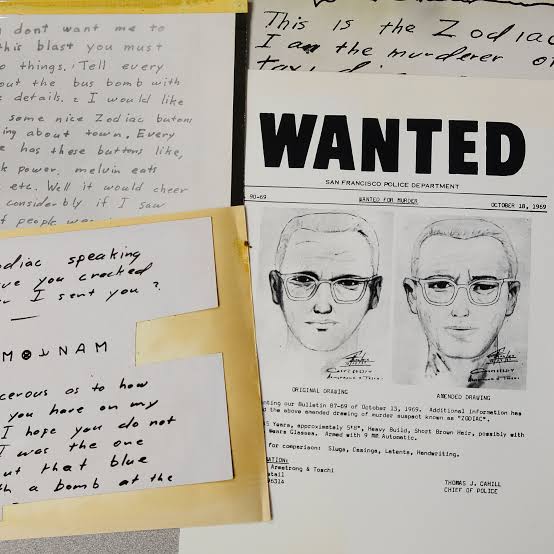 dont want me to
this blast you must
o things. Tell every
out the bus bomb with
e details. 2 I would like
some nice Zodiac butons
ing about town. Every
e has these buttons like,
k power, melvin eats
etc. Well it would cheer
considerbly if I saw
f people
This is the Zodiac
I am the murderer of
WANTED
SAN FRANCISCO POLICE DEPARTMENT
90-69 WANTED FOR MURDER OCTOBER 18, 1969
ORIGINAL DRAWING AMENDED DRAWING
nting our Bulletin 87-69 of October 13, 1969. Additional information has
d the above amended drawing of murder suspect known as "ZODIAC".
5 Years, approximately 5'8", Heavy Build, Short Brown Hair, possibly with
Wears Glasses. Armed with 9 MM Automatic.
for comparison: Slugs, Casings, Latents, Handwriting.
ATION:
Armstrong & Toschi
tail
96314
THOMAS J. CAHILL
CHIEF OF POLICE
odiac speaking
ave you cracked
I sent you ?
M⊗ NAM
cerous as to how
you have on my
I hope you do not
I was the one
ut that blue
h a bomb at the